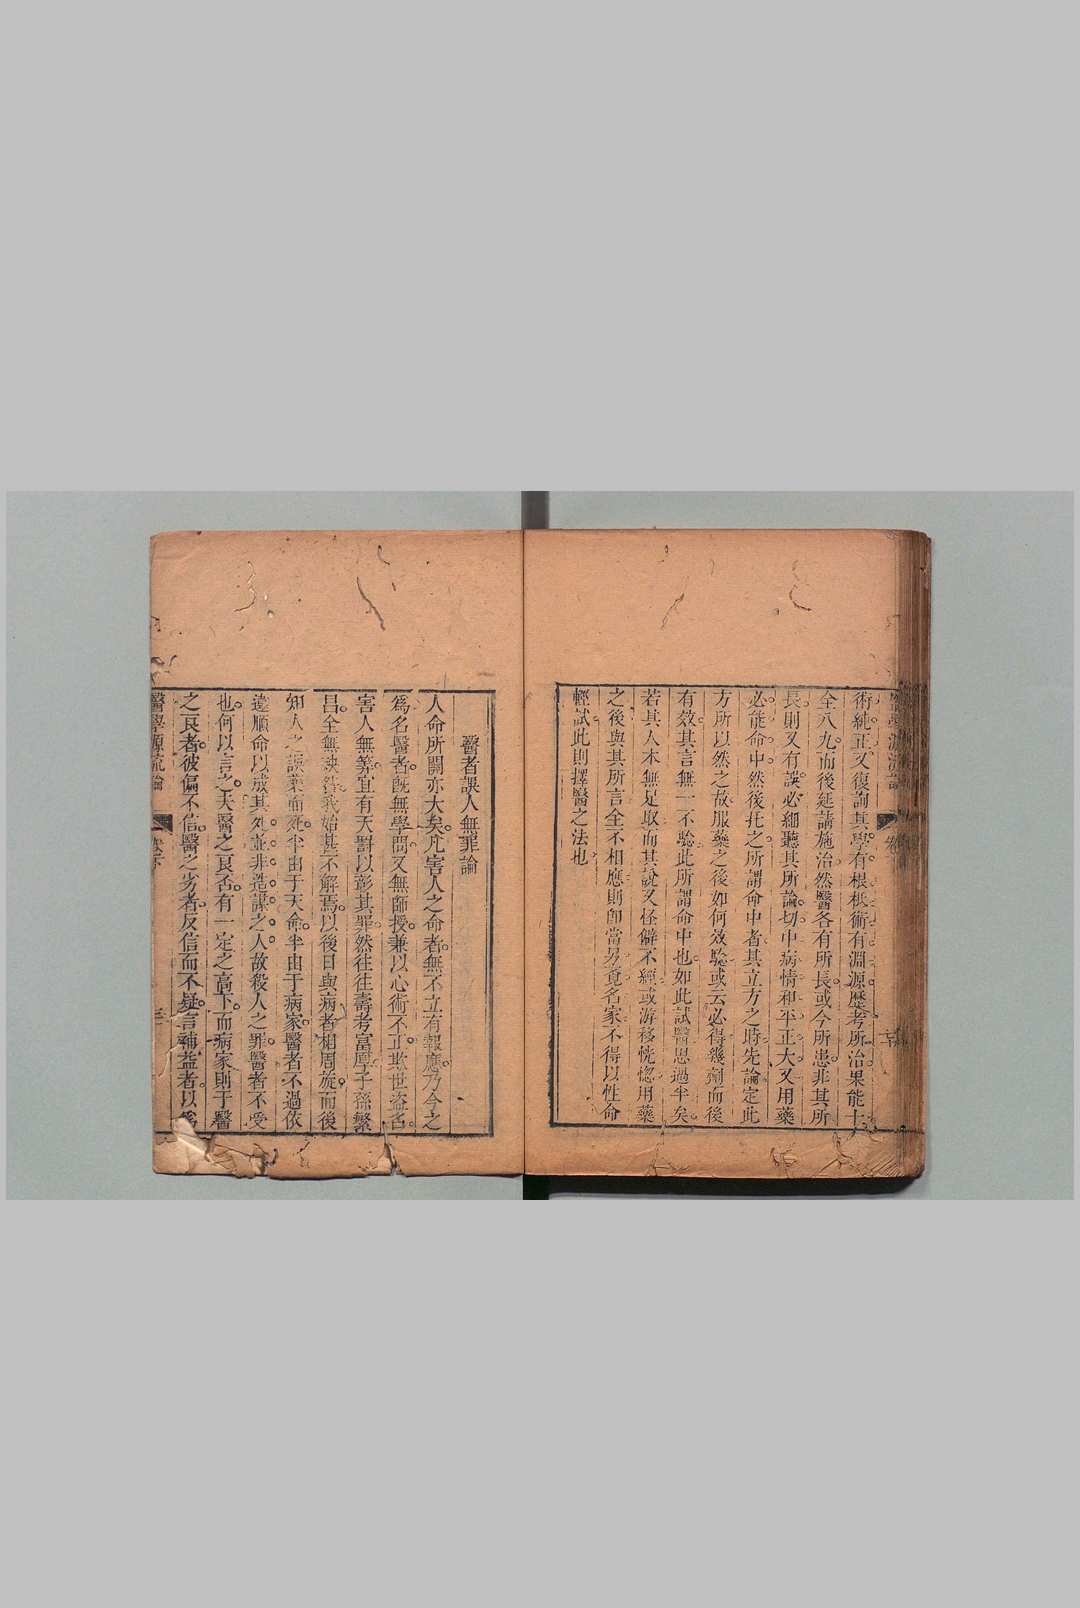 術純正又復詢其學有根柢術有淵源歷考所治果能十
全八九而後延請施治然醫各有所長或今所患非其所
長則又有誤必細聽其所論切中病情和平正大又用藥
必能命中然後托之所謂命中者其立方之時先論定此
方所以然之故服藥之後如何效驗或云必得幾劑而後
有效其言無一不驗此所謂命中也如此試醫思過半矣
若其人本無足取而其說又怪僻不經或游移恍惚用藥
之後與其所言全不相應則即當另覓名家不得以性命
輕試此則擇醫之法也
醫者誤人無罪論
人命所關亦大矣凡害人之命者無不立有報應乃今之
爲名醫者既無學問又無師授兼以心術不正欺世盜名
害人無筭宜有天罸以彰其罪然往往壽考富厚子孫繁
昌全無殃咎我始甚不解焉以後日與病者相周旋而後
知人之誤藥而死半由于天命半由于病家醫者不過依
違順命以成其死並非造謀之人故殺人之罪醫者不受
也何以言之夫醫之良否有一定之高下而病家則于醫
之良者彼偏不信醫之劣者反信而不疑言補益者以爲
醫學源流論